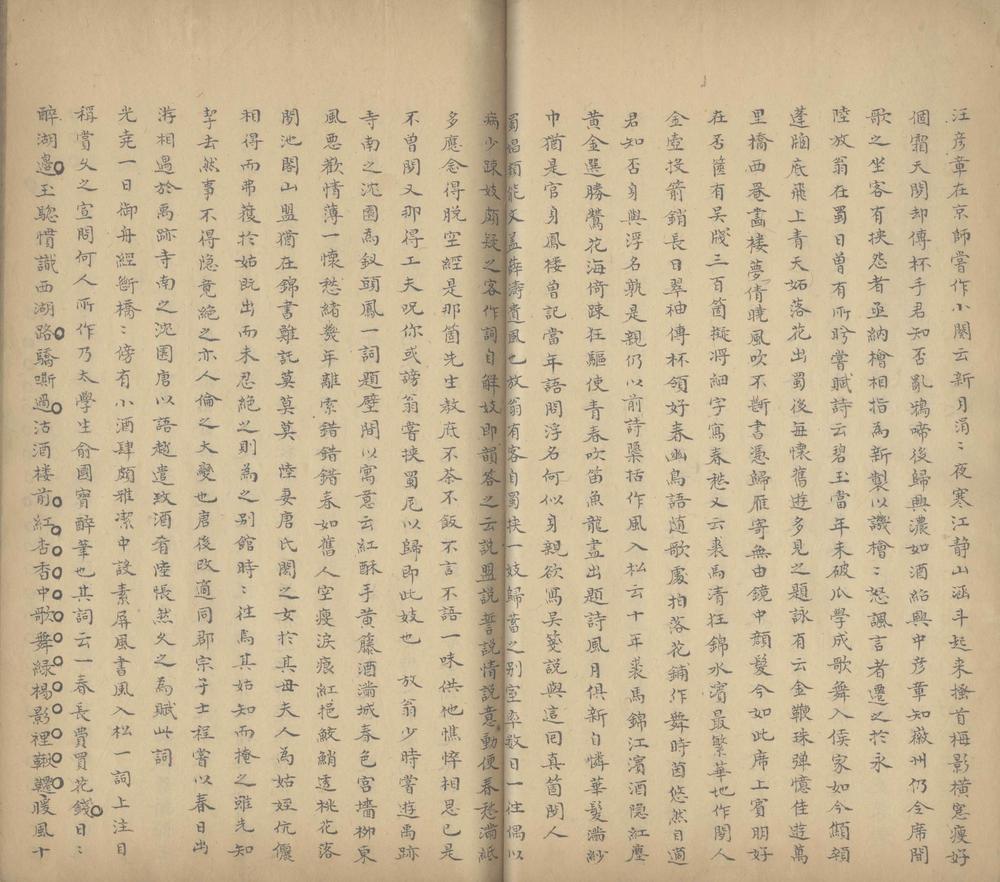 汪彥章在京師嘗作小闋云新月涓〻夜寒江静山涵斗起来搔首梅影横窓瘦好
個霜天閑却傳杯手君知否亂鴉啼後歸興濃如酒紹興中彦章知徽州仍令席間
歌之坐客有挟怨者亟納檜相指為新製以譏檜〻怒諷言者遷之於永
陸放翁在蜀日曽有所盻嘗賦詩云碧玉當年未破瓜學成歌舞入侯家如今顦顇
蓬牕底飛上青天妬落花出蜀後每懐舊遊多見之題詠有云金鞭珠弹憶佳遊萬
里橋西罨畵楼夢倩曉風吹不斷書憑歸雁寄無由鏡中顔髮今如此席上賓朋好
在否箧有吴牋三百箇擬将細字寫春愁又云裘馬清狂錦水濱最繁華地作閑人
金壺投箭銷長日翠袖傳杯領好春幽鳥語随歌處拍落花鋪作舞時茵悠然自適
君知否身與浮名孰是親仍以前詩檃括作風入松云十年裘馬錦江濱酒隠紅塵
黄金選勝鶯花海倚疎狂驅使青春吹笛魚龍盡出題詩風月俱新自憐華髮滿紗
巾猶是官身鳳楼曽記當年語問浮名何似身親欲寫吴箋說與這回真箇閑人
蜀倡類能文盖薛濤遺風也放翁有客自蜀挟一妓歸蓄之别室率數日一徃偶以
病少疎妓頗疑之客作詞自解妓即韻答之云説盟説誓説情説意動便春愁滿紙
多應念得脱空經是那箇先生教底不茶不飯不言不語一味供他憔悴相思已是
不曽閑又那得工夫呪你或謗翁嘗挾蜀尼以歸即此妓也　放翁少時嘗遊禹跡
寺南之沈園為釵頭鳳一詞題壁間以寓意云紅酥手黄藤酒滿城春色宫墻柳東
風悪歡情薄一懐愁緒幾年離索錯錯錯春如舊人空瘦淚痕紅挹鮫鮹透桃花落
閑池閣山盟猶在錦書難託莫莫莫　陸妻唐氏閎之女於其母夫人為姑姪伉儷
相得而弗獲於姑既出而未忍絶之則為之别館時〻徃焉其姑知而掩之雖先知
挈去然事不得隠竟絶之亦人倫之大變也唐後改適同郡宗子士程嘗以春日出
游相遇於禹跡寺南之沈園唐以語趙遣致酒肴陸悵然久之為賦此詞
光堯一日御舟經斷橋〻傍有小酒肆頗雅潔中設素屏風書風入松一詞上注目
稱賞久之宣問何人所作乃太學生俞國寶醉筆也其詞云一春長費買花錢日〻
醉湖邊玉驄慣識西湖路驕嘶過沽酒楼前紅杏香中歌舞緑楊影裡鞦韆暖風十